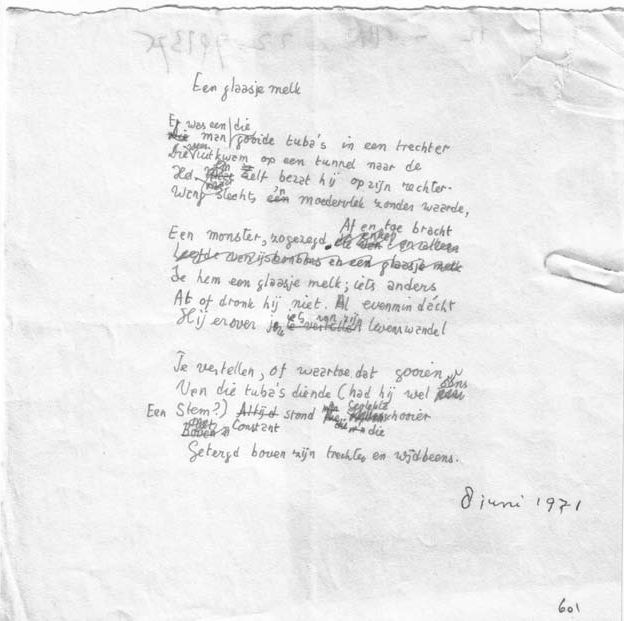 Een glaasje melk
Er was een die
Die man gooide tuba's in een trechter
Die uitkwam op een tunnel naar de
Hel. zelf bezat hij op zijn rechter-
Wang slechts één moedervlek zonder waarde,
Af en toe bracht
Een monster, zogezegd.
Leefde van ijsbonbons en een glaasje melk
Je hem een glaasje melk; iets anders
At of dronk hij niet. Al evenmin dácht
iets van zijn
Hij erover je te vertellen levenswandel
Te vertellen, of waartoe dat gooien
Van die tuba's diende (had hij wel soms
Een Stem?) Altijd stond
Boven Constant die
Getergd boven zijn trechter en wijdbeens.
8 juni 1971
601